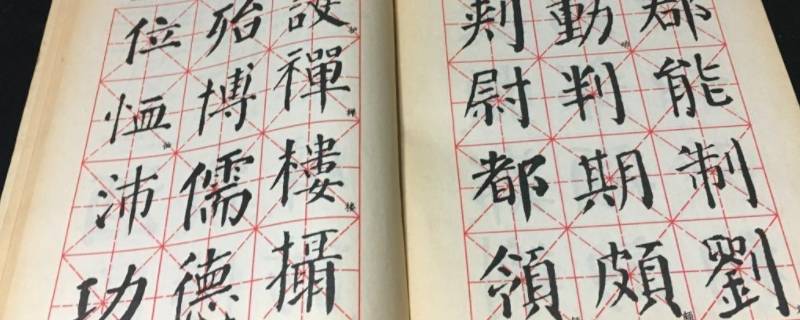 郡能制劉
動判期頗
尉都領
設禪樓攝
殆博儒德
位恤沛功